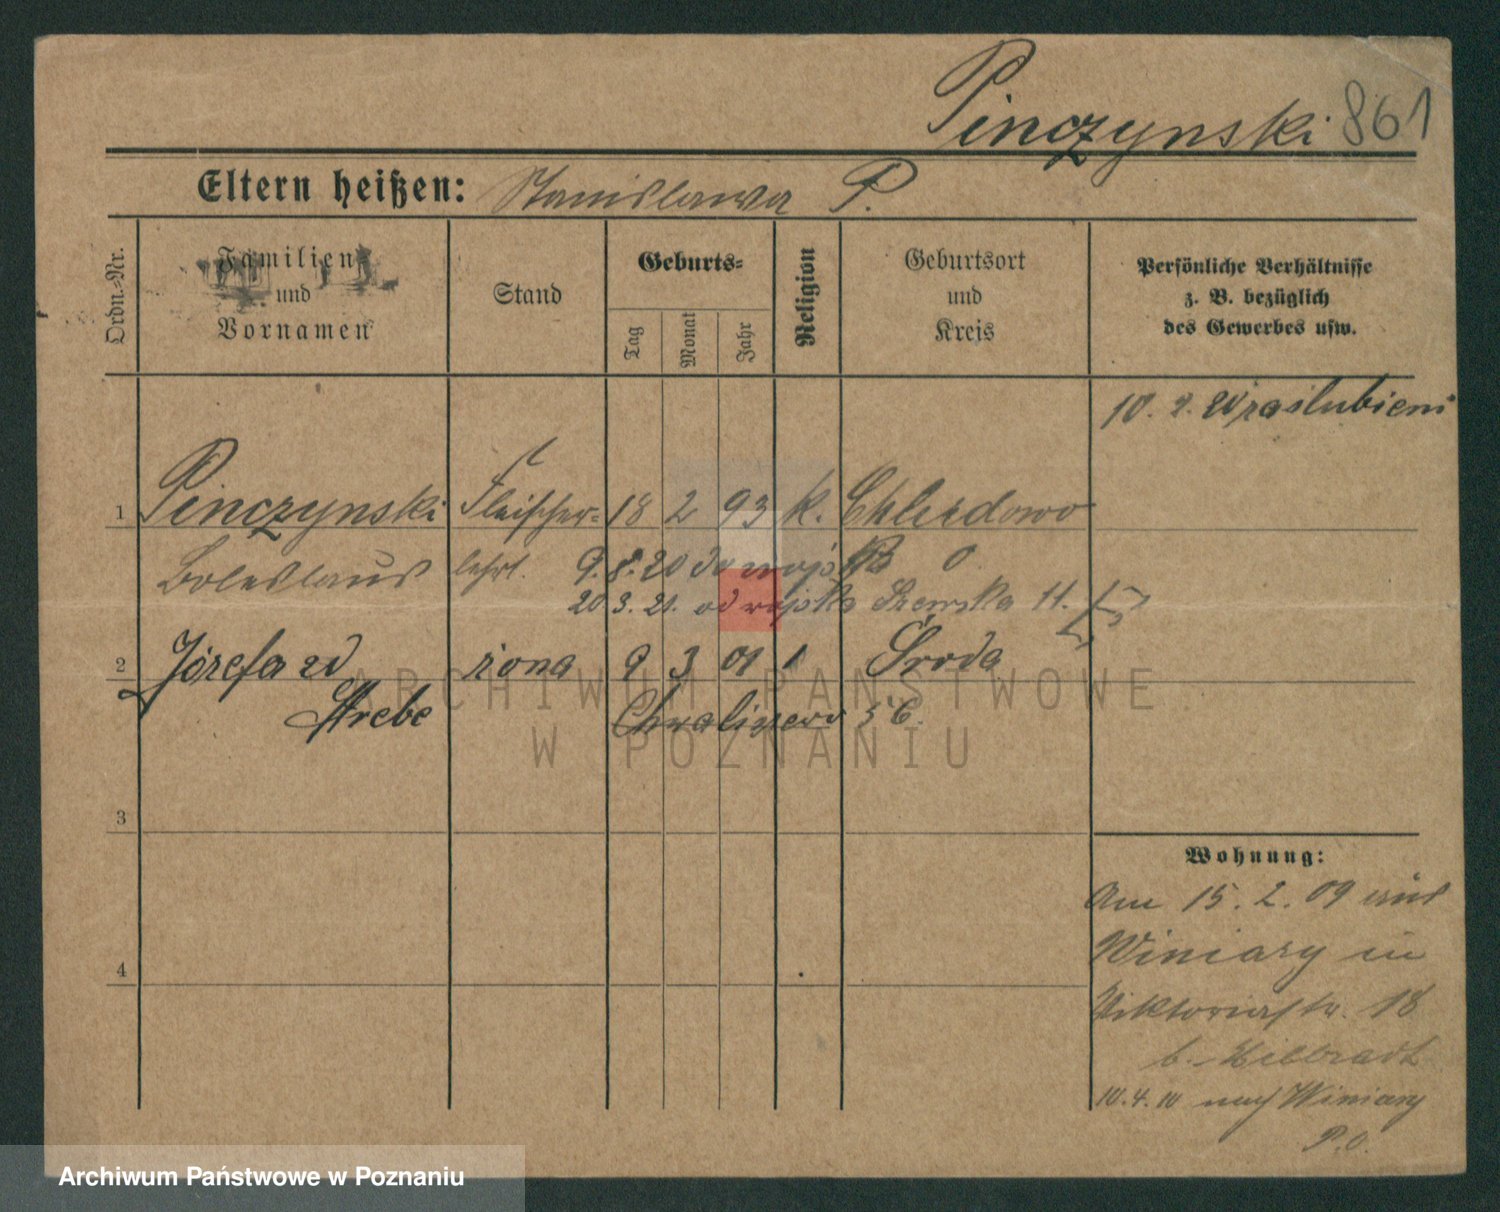 Pinczynski 861
Eltern heißen: Stanislawa P.
Ordn.-Nr.
Familien
und
Vornamen
Stand
Geburts-
Tag
Monat
Jahr
Religion
Geburtsort
und
Kreis
Persönliche Verhältnisse
z. B. bezüglich
des Gewerbes usw.
10. 2.
1 Pinczynski Fleischer- 18 2 93 k.
Boleslaus lehrl. 9.8.20 do wojska
20.3.21. od wojska Szewska 11.
2 Józefa żona 9 3 01 Środa
Chwaliszewo 56.
3
4
Wohnung:
Am 15.2.09 aus
Winiary in
Viktoriastr. 18
b.
10.4.10 nach Winiary
P.O.
ARCHIWUM PAŃSTWOWE
W POZNANIU
Archiwum Państwowe w Poznaniu